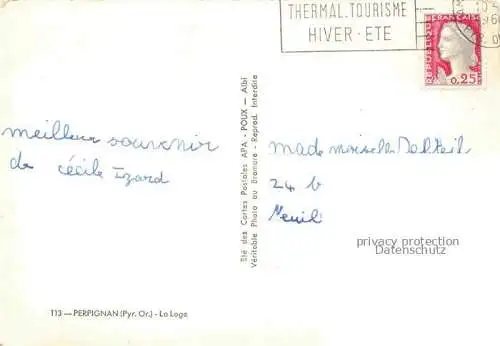 THERMAL.TOURISME
HIVER - ETE
REPUBLIQUE FRANÇAISE
0,25
meilleur souvenir
de Cécile Izard
Sté des Cartes Postales APA - POUX - Albi
Véritable Photo au Bromure - Reprod. Interdite
mademoiselle Delteil
24 b
privacy protection
Datenschutz
113 — PERPIGNAN (Pyr. Or.) - La Loge